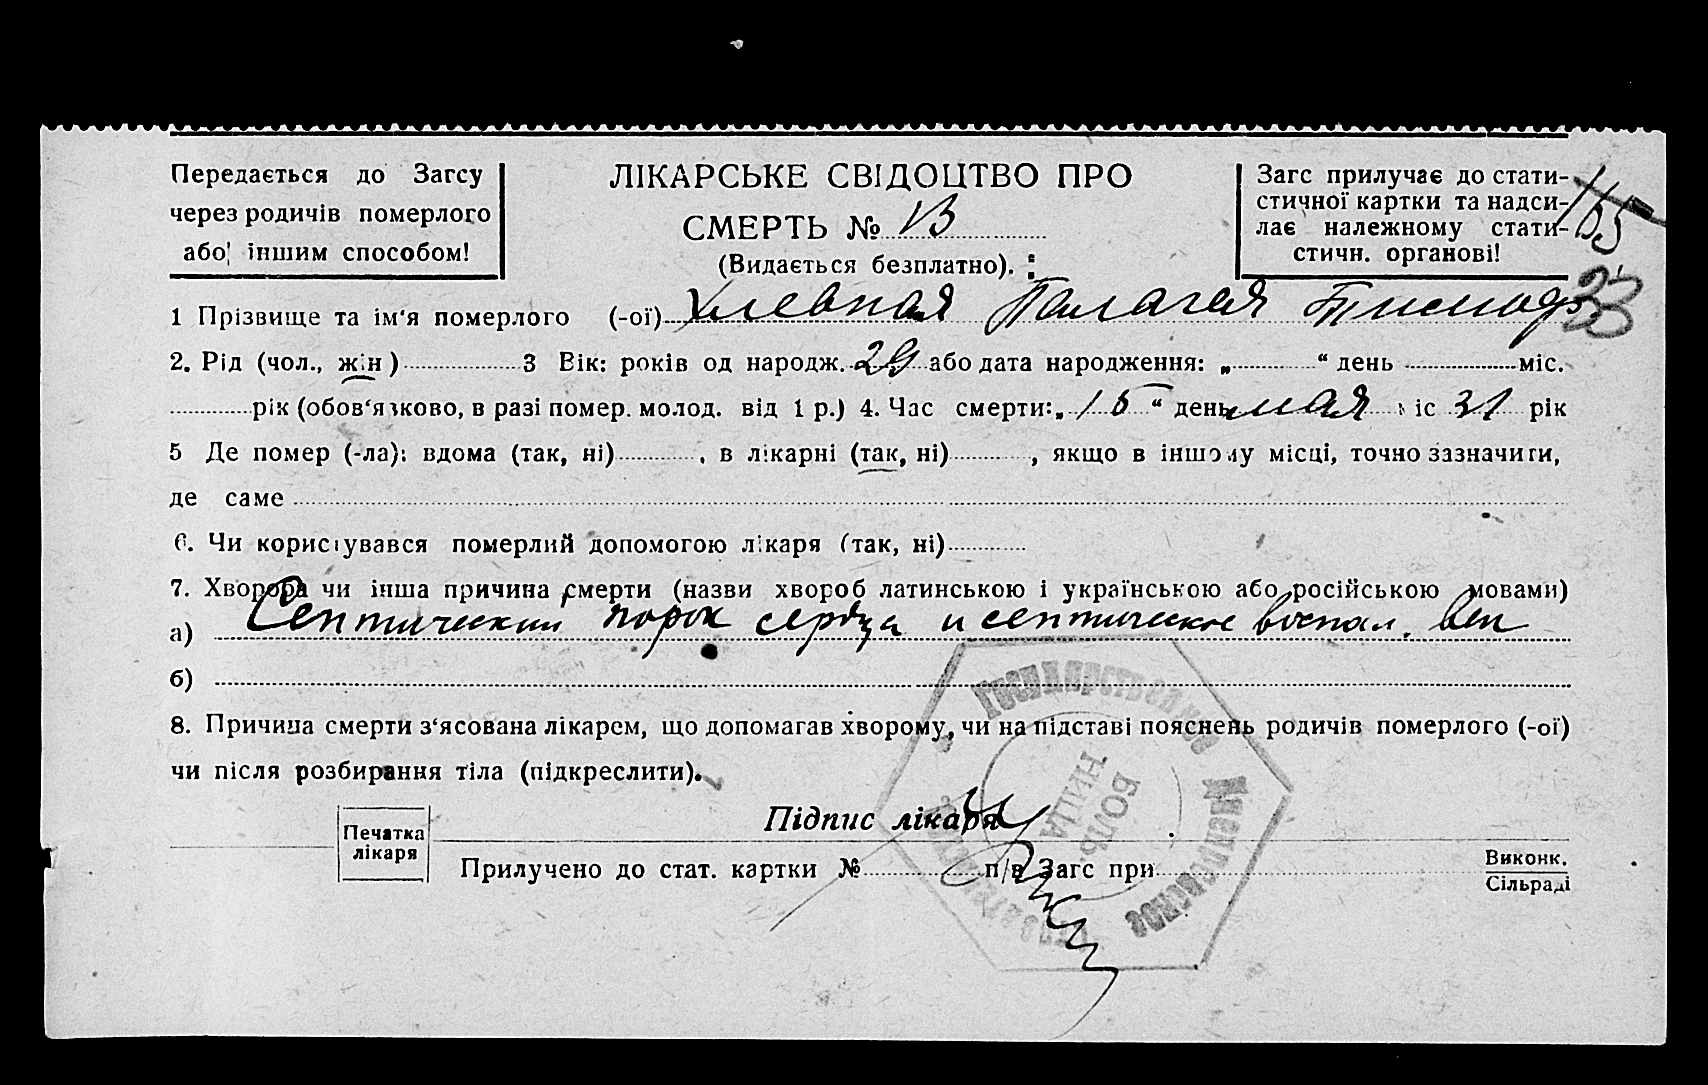 Передається до Загсу
через родичів померлого
або іншим способом!
ЛІКАРСЬКЕ СВІДОЦТВО ПРО
СМЕРТЬ №
(Видається безплатно).
Загс прилучає до стати-
стичної картки та надси-
лає належному стати-
стичн. органові!
165
33
1 Прізвище та ім'я померлого (-ої) Хлевная Палагея
2. Рід (чол., жін) 3 Вік: років од народж. 29 або дата народження: „ “ день міс.
рік (обов'язково, в разі помер. молод. від 1 р.) 4. Час смерти: „ 15 “ день мая міс 31 рік
5 Де помер (-ла): вдома (так, ні) , в лікарні (так, ні) , якщо в іншому місці, точно зазначити,
де саме
6. Чи користувався померлий допомогою лікаря (так, ні)
7. Хвороба чи інша причина смерти (назви хвороб латинською і українською або російською мовами)
а) Септический порок сердца и септическое воспал.
б)
8. Причина смерти з'ясована лікарем, що допомагав хворому, чи на підставі пояснень родичів померлого (-ої)
чи після розбирання тіла (підкреслити).
Підпис лікаря
Печатка
лікаря
Прилучено до стат. картки № п/в Загс при
Виконк.
Сільраді
Государственное
БОЛЬ-
НИЦА